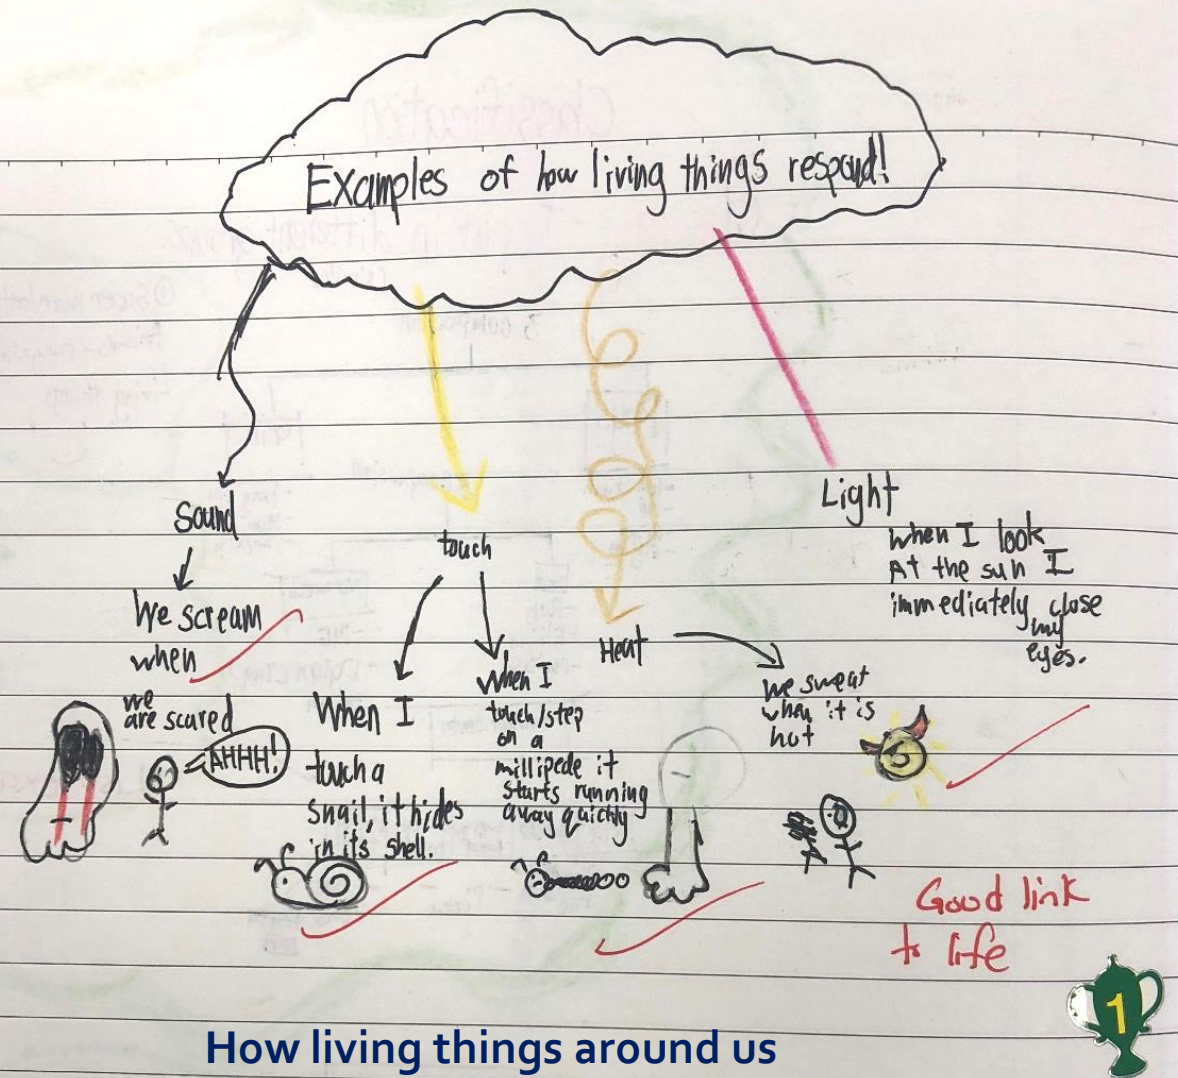 Examples of how living things respond!
Sound
We scream
when
we
are scared
AHHH!
touch
When I
touch a
snail, it hides
in its shell.
When I
touch/step
on a
millipede it
starts running
away quickly
Heat
we sweat
when it is
hot
Light
when I look
At the sun I
immediately close
my
eyes.
Good link
to life
1
How living things around us